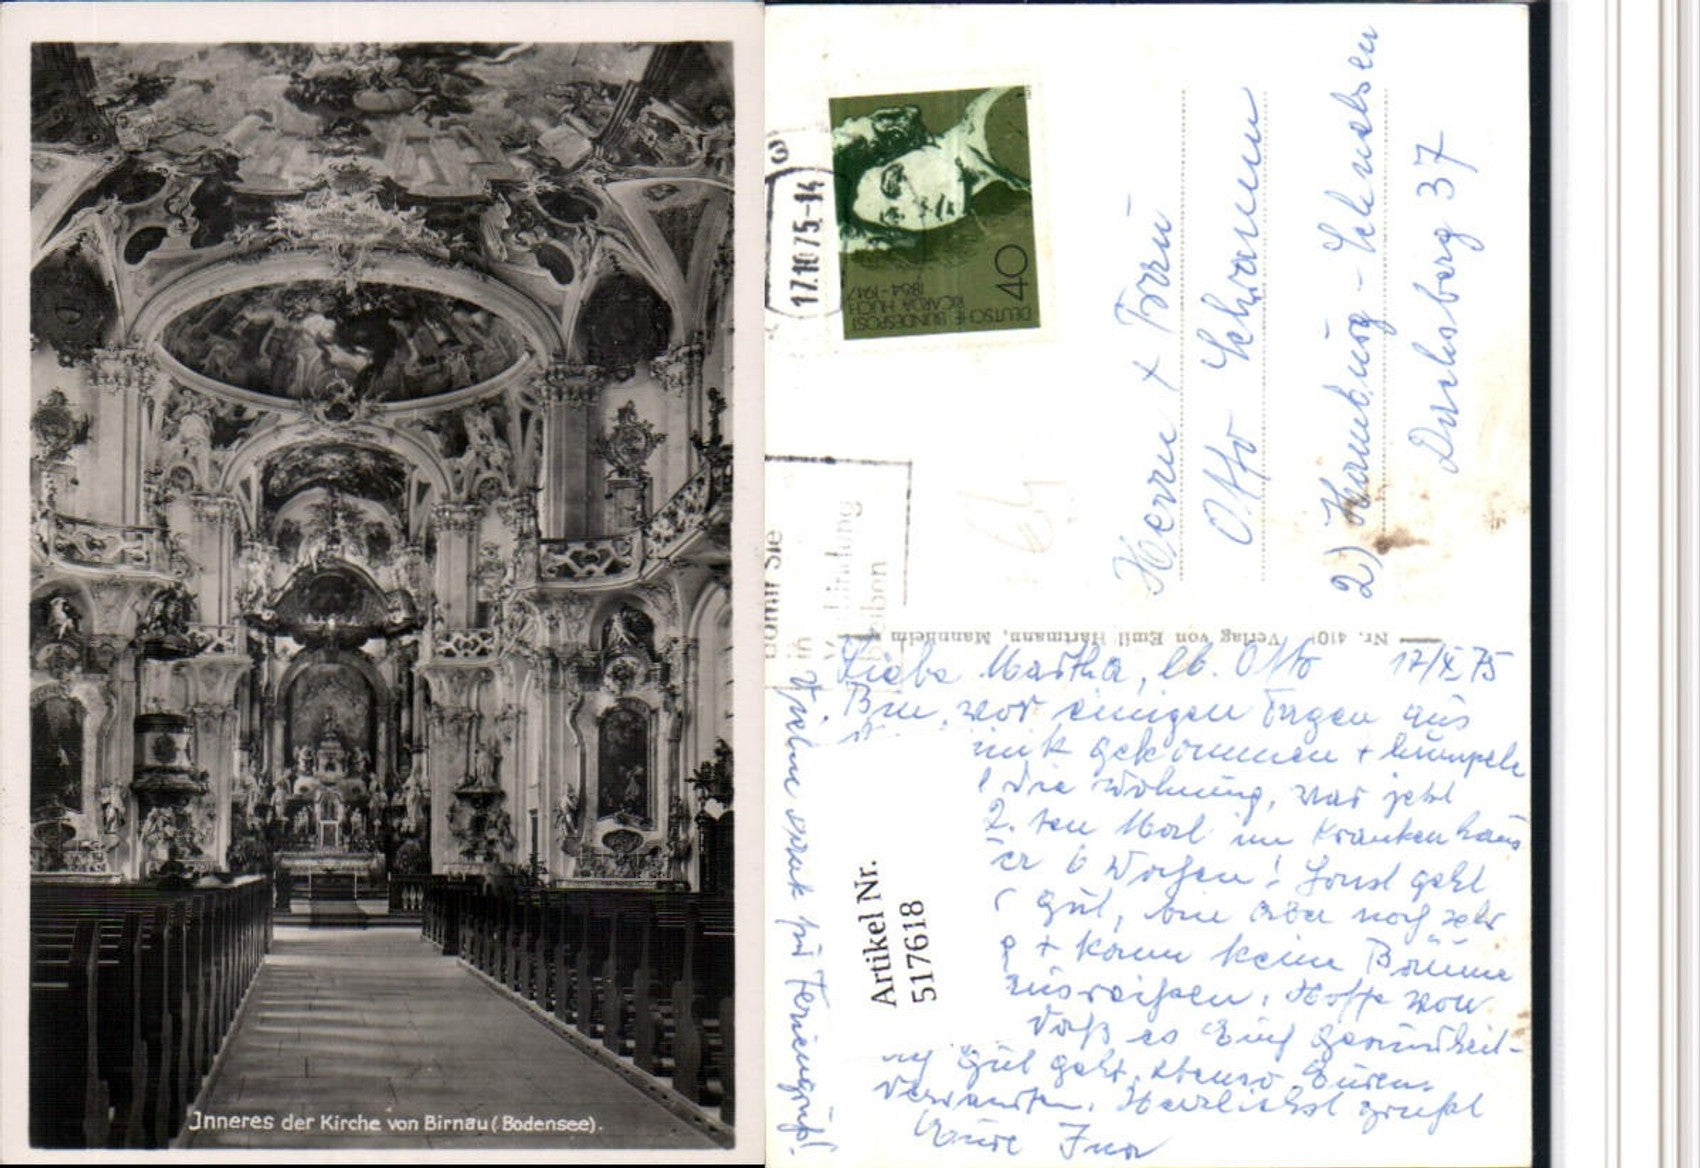 Inneres der Kirche von Birnau (Bodensee).
17.10.75-14
DEUTSCHE BUNDESPOST
RICARDA HUCH
1864-1947
40
damit Sie
in
Verbindung
bleiben
Herrn + Frau
Otto Schramm
2) Hamburg - Schnelsen
Duhsberg 37
Nr. 410 Verlag von Emil Hartmann, Mannheim
Liebe Martha, lb. Otto 17/X 75
Bin vor einigen Tagen aus
nik gekommen + humpele
die Wohnung, war jetzt
2. ten Mal im Krankenhaus
er 6 Wochen! Sonst geht
gut, bin aber noch sehr
+ kann keine Bäume
ausreissen. Hoffe von
daß es Euch gesundheit-
ich gut geht, ebenso Euren
Verwandten. Herzlichst grüßt
Eure Ina
vielen Dank für Feriengruß!
Artikel Nr.
517618